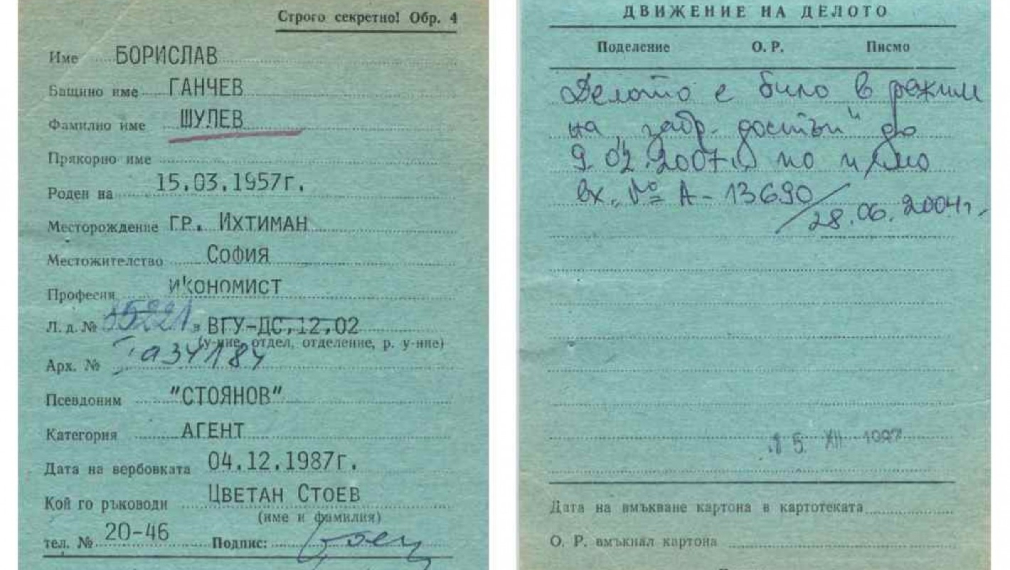 Строго секретно! Обр. 4
Име БОРИСЛАВ
Бащино име ГАНЧЕВ
Фамилно име ШУЛЕВ
Прякорно име
Роден на 15.03.1957г.
Месторождение ГР. ИХТИМАН
Местожителство СОФИЯ
Професия ИКОНОМИСТ
Л. д. № 35221 в ВГУ-ДС,12,02
(у-ние, отдел, отделение, р. у-ние)
Арх. №
Псевдоним "СТОЯНОВ"
Категория АГЕНТ
Дата на вербовката 04.12.1987г.
Кой го ръководи ЦВЕТАН СТОЕВ
(име и фамилия)
тел. № 20-46 Подпис:
ДВИЖЕНИЕ НА ДЕЛОТО
Поделение О. Р. Писмо
Делото е било в режим
на „забр. достъп" до
9.02.2007г. по писмо
вх. № А-13690/28.06.2004г.
15. XII 1987
Дата на вмъкване картона в картотеката
О. Р. вмъкнал картона